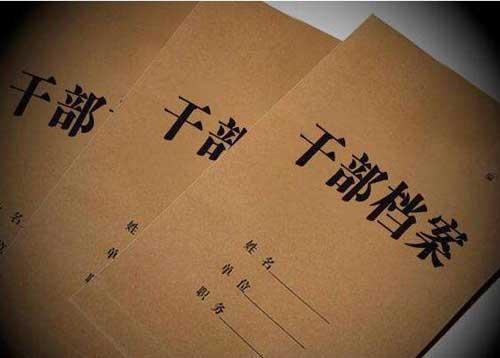 干部
名
位
干部
姓
单
干部档案
姓名
单位
职务